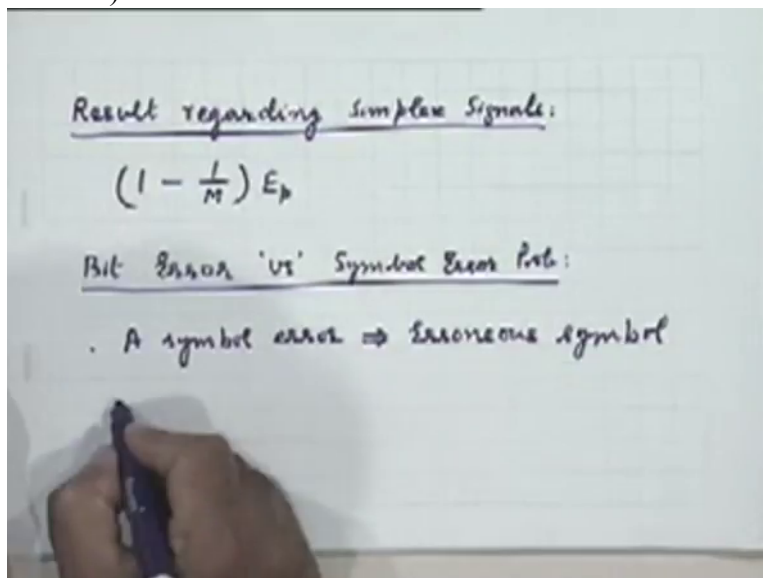 Result regarding Simplex Signals:
(1 - 1/M) Ep
Bit Error 'vs' Symbol Error Prob:
. A symbol error ⇒ Erroneous symbol